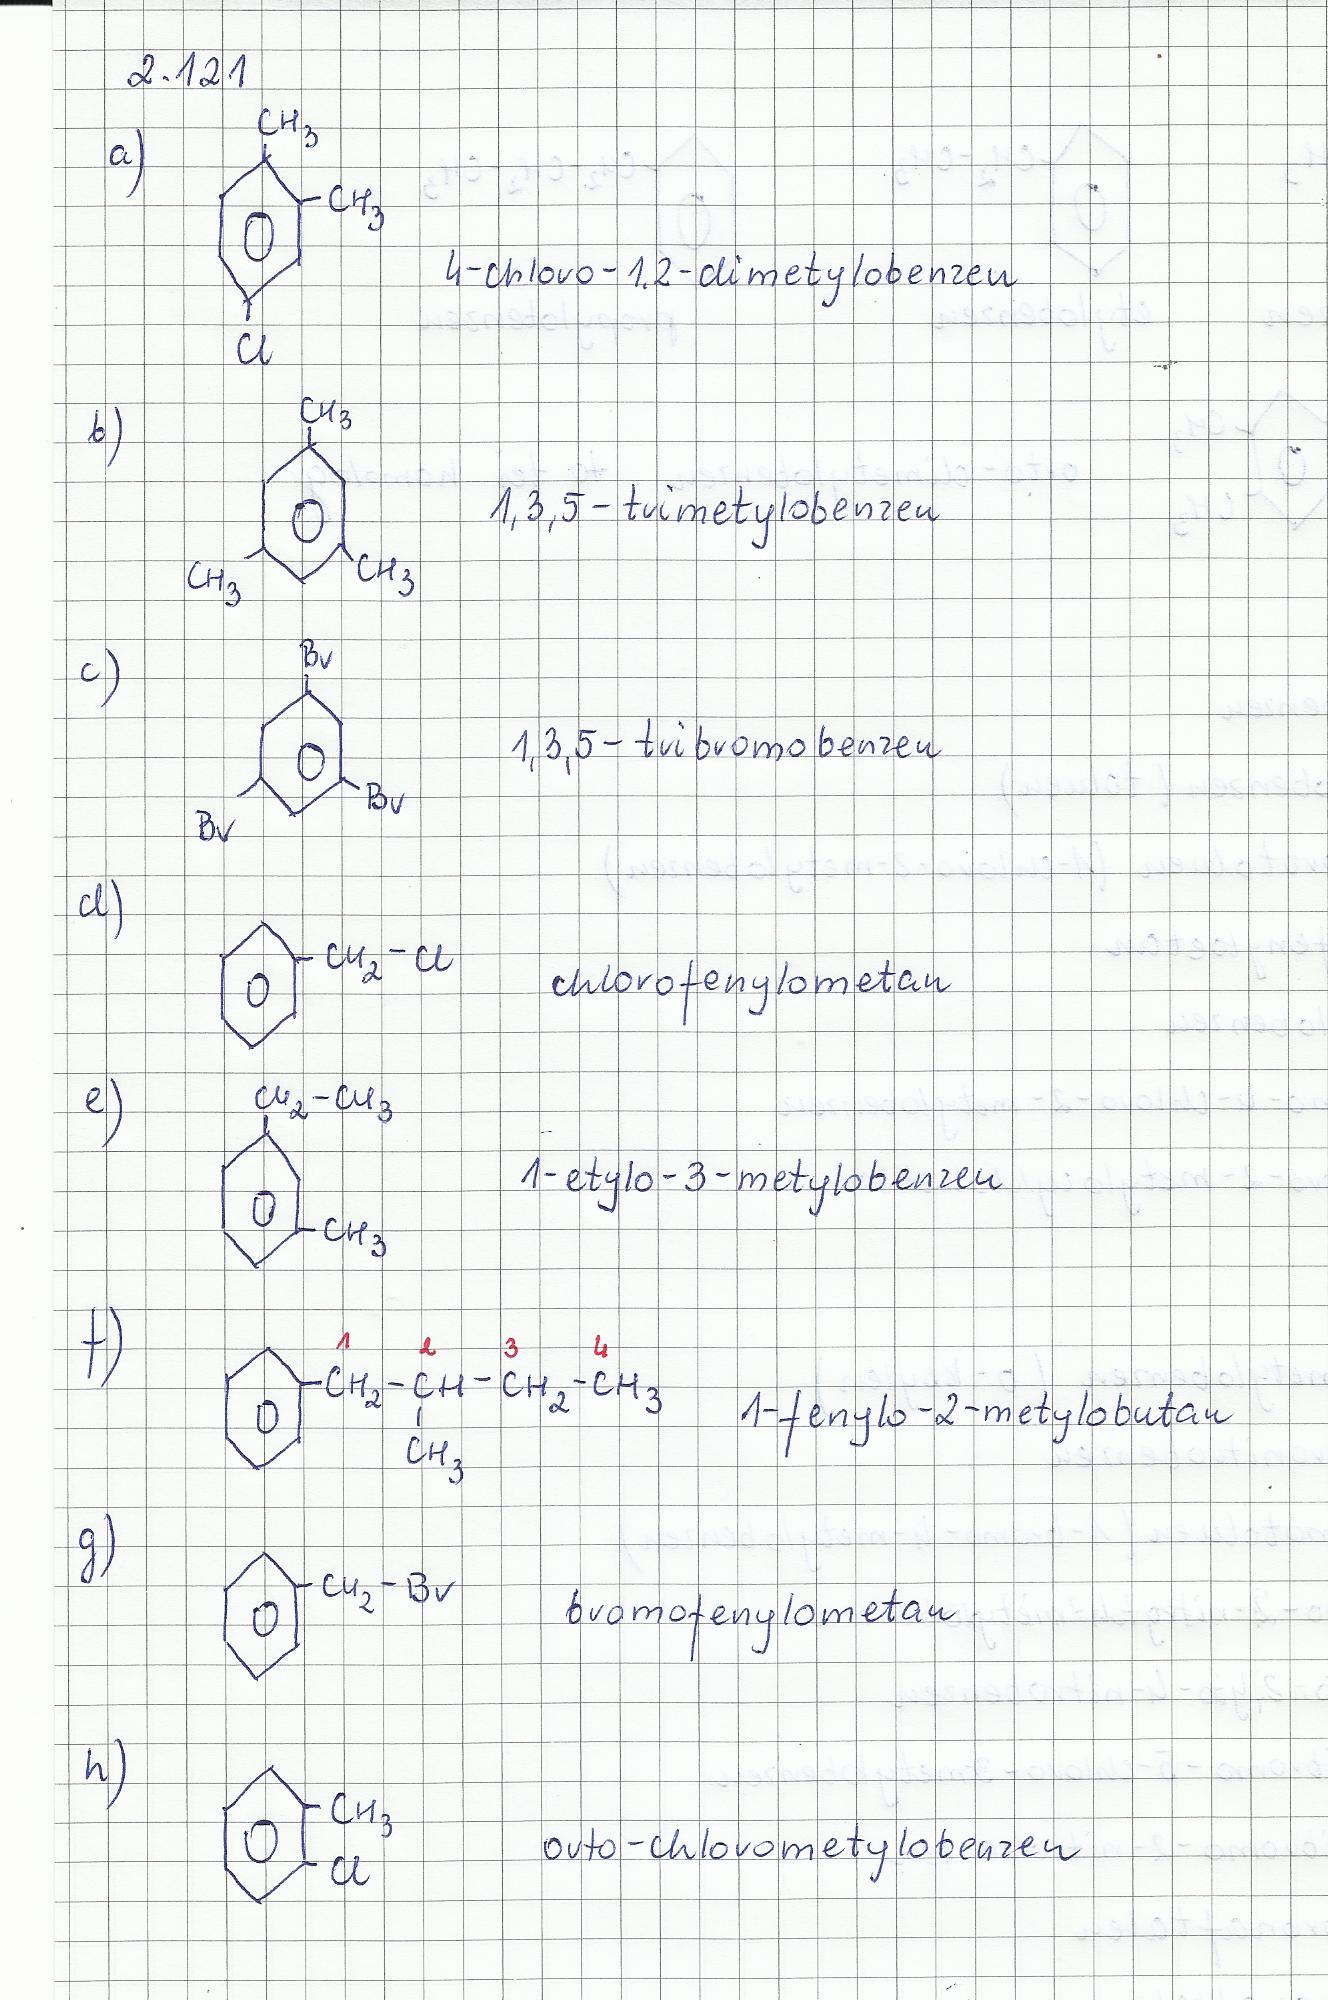 2.121
a)
CH3
CH3
4-chloro-1,2-dimetylobenzen
Cl
b)
CH3
1,3,5-trimetylobenzen
CH3
CH3
c)
Br
1,3,5-tribromobenzen
Br
Br
d)
CH2-Cl
chlorofenylometan
e)
CH2-CH3
1-etylo-3-metylobenzen
CH3
f)
1 2 3 4
CH2-CH-CH2-CH3
1-fenylo-2-metylobutan
CH3
g)
CH2-Br
bromofenylometan
h)
CH3
orto-chlorometylobenzen
Cl